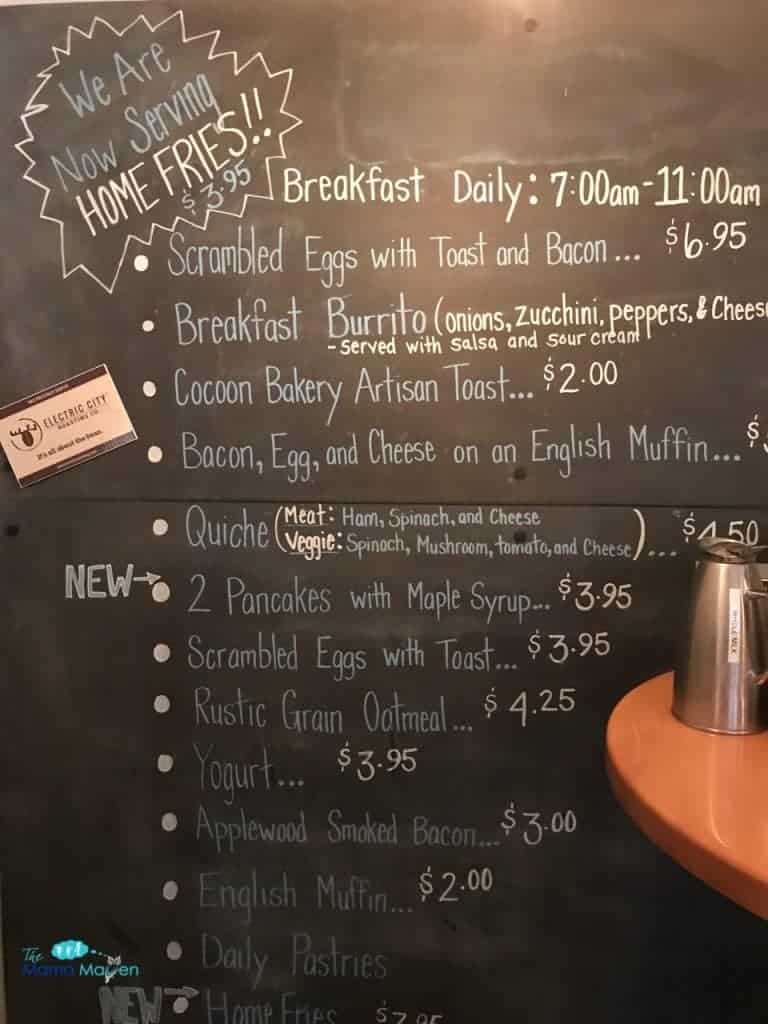 We Are
Now Serving
HOME FRIES!!
$3.95
Breakfast Daily: 7:00am-11:00am
Scrambled Eggs with Toast and Bacon... $6.95
Breakfast Burrito (onions, zucchini, peppers, & Cheese
-Served with Salsa and Sour cream
Cocoon Bakery Artisan Toast... $2.00
ELECTRIC CITY
ROASTING CO.
It's all about the bean.
Bacon, Egg, and Cheese on an English Muffin... $
Quiche (Meat: Ham, Spinach, and Cheese
Veggie: Spinach, Mushroom, tomato, and Cheese)... $4.50
NEW→ 2 Pancakes with Maple Syrup... $3.95
WHOLE MILK
Scrambled Eggs with Toast... $3.95
Rustic Grain Oatmeal... $4.25
Yogurt... $3.95
Applewood Smoked Bacon... $3.00
English Muffin... $2.00
Daily Pastries
The
Mama Maven
NEW→ Home Fries $3.95